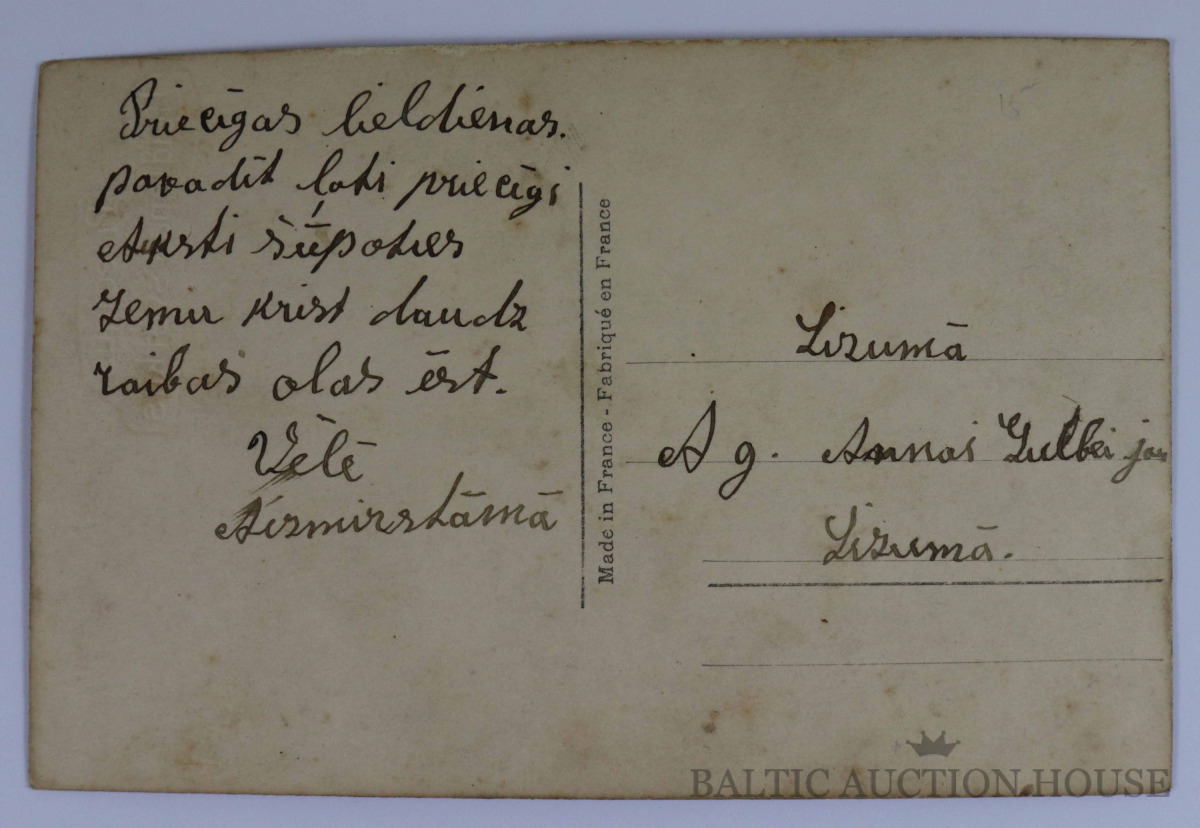 Priecīgas lieldienas.
pavadīt ļoti priecīgi
Aksti šūpoties
zemu krist daudz
raibas olas ēst.
Vēlē
Aizmirstāmā
Made in France - Fabriqué en France
Lizumā
A g. Annai Gulbei
Lizumā.
BALTIC AUCTION HOUSE